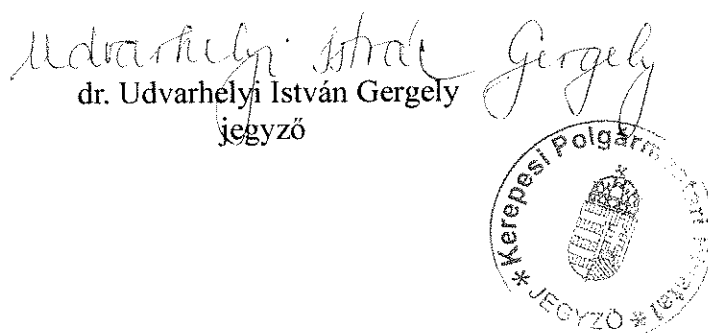 Udvarhelyi István Gergely
dr. Udvarhelyi István Gergely
jegyző
* Kerepesi Polgármesteri Hivatal
* JEGYZŐ *